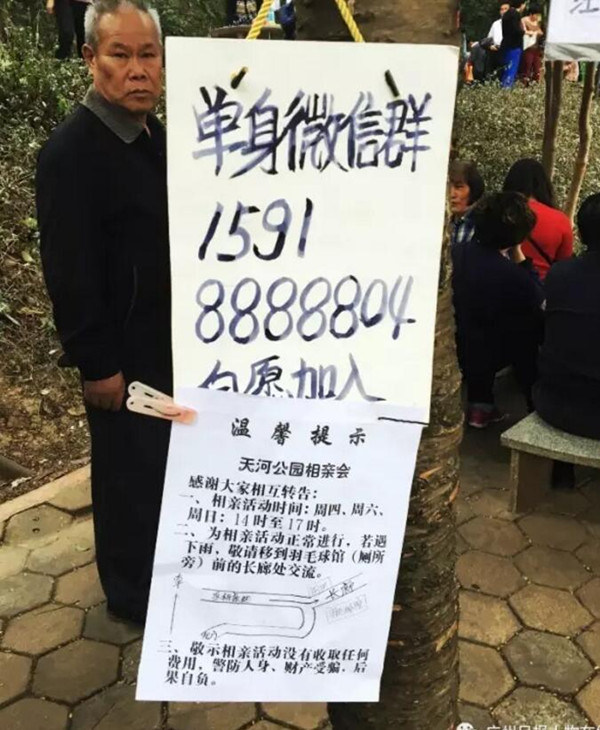 单身微信群
1591
8888804
自愿加入
温馨提示
天河公园相亲会
感谢大家相互转告：
一、相亲活动时间：周四、周六、
周日：14时至17时。
二、为相亲活动正常进行，若遇
下雨，敬请移到羽毛球馆（厕所
旁）前的长廊处交流。
长廊
北门
三、敬示相亲活动没有收取任何
费用，警防人身、财产受骗，后
果自负。
江